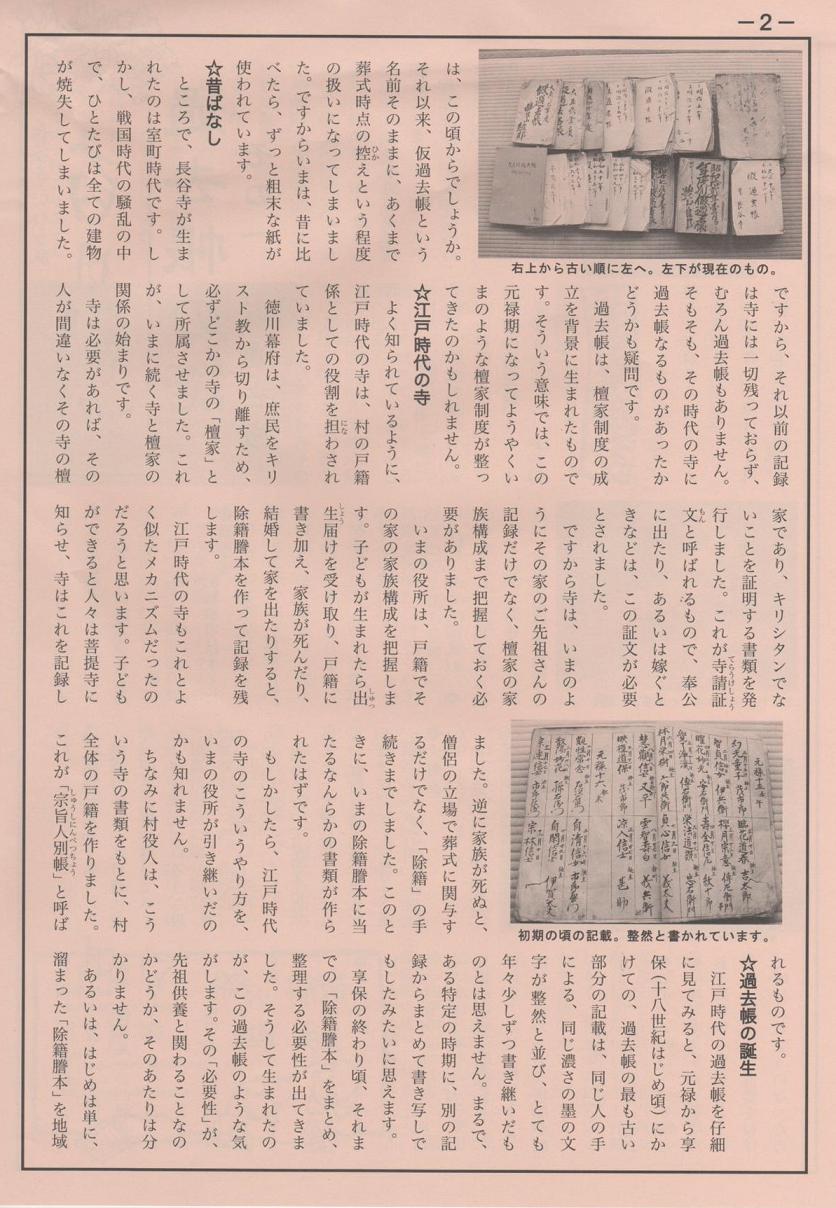 －２－
は、この頃からでしょうか。
それ以来、仮過去帳という
名前そのままに、あくまで
葬式時点の控えという程度
の扱いになってしまいまし
た。ですからいまは、昔に比
べたら、ずっと粗末な紙が
使われています。
☆昔ばなし
ところで、長谷寺が生ま
れたのは室町時代です。し
かし、戦国時代の騒乱の中
で、ひとたびは全ての建物
が焼失してしまいました。
右上から古い順に左へ。左下が現在のもの。
ですから、それ以前の記録
は寺には一切残っておらず、
むろん過去帳もありません。
そもそも、その時代の寺に
過去帳なるものがあったか
どうかも疑問です。
過去帳は、檀家制度の成
立を背景に生まれたもので
す。そういう意味では、この
元禄期になってようやくい
まのような檀家制度が整っ
てきたのかもしれません。
☆江戸時代の寺
よく知られているように、
江戸時代の寺は、村の戸籍
係としての役割を担わされ
ていました。
徳川幕府は、庶民をキリ
スト教から切り離すため、
必ずどこかの寺の「檀家」と
して所属させました。これ
が、いまに続く寺と檀家の
関係の始まりです。
寺は必要があれば、その
人が間違いなくその寺の檀
家であり、キリシタンでな
いことを証明する書類を発
行しました。これが寺請証
文と呼ばれるもので、奉公
に出たり、あるいは嫁ぐと
きなどは、この証文が必要
とされました。
ですから寺は、いまのよ
うにその家のご先祖さんの
記録だけでなく、檀家の家
族構成まで把握しておく必
要がありました。
いまの役所は、戸籍でそ
の家の家族構成を把握しま
す。子どもが生まれたら出
生届けを受け取り、戸籍に
書き加え、家族が死んだり、
結婚して家を出たりすると、
除籍謄本を作って記録を残
します。
江戸時代の寺もこれとよ
く似たメカニズムだったの
だろうと思います。子ども
ができると人々は菩提寺に
知らせ、寺はこれを記録し
初期の頃の記載。整然と書かれています。
ました。逆に家族が死ぬと、
僧侶の立場で葬式に関与す
るだけでなく、「除籍」の手
続きまでしました。このと
きに、いまの除籍謄本に当
たるなんらかの書類が作ら
れたはずです。
もしかしたら、江戸時代
の寺のこういうやり方を、
いまの役所が引き継いだの
かも知れません。
ちなみに村役人は、こう
いう寺の書類をもとに、村
全体の戸籍を作りました。
これが「宗旨人別帳」と呼ば
れるものです。
☆過去帳の誕生
江戸時代の過去帳を仔細
に見てみると、元禄から享
保（十八世紀はじめ頃）にか
けての、過去帳の最も古い
部分の記載は、同じ人の手
による、同じ濃さの墨の文
字が整然と並び、とても
年々少しずつ書き継いだも
のとは思えません。まるで、
ある特定の時期に、別の記
録からまとめて書き写しで
もしたみたいに思えます。
享保の終わり頃、それま
での「除籍謄本」をまとめ、
整理する必要性が出てきま
した。そうして生まれたの
が、この過去帳のような気
がします。その「必要性」が、
先祖供養と関わることなの
かどうか、そのあたりは分
かりません。
あるいは、はじめは単に、
溜まった「除籍謄本」を地域